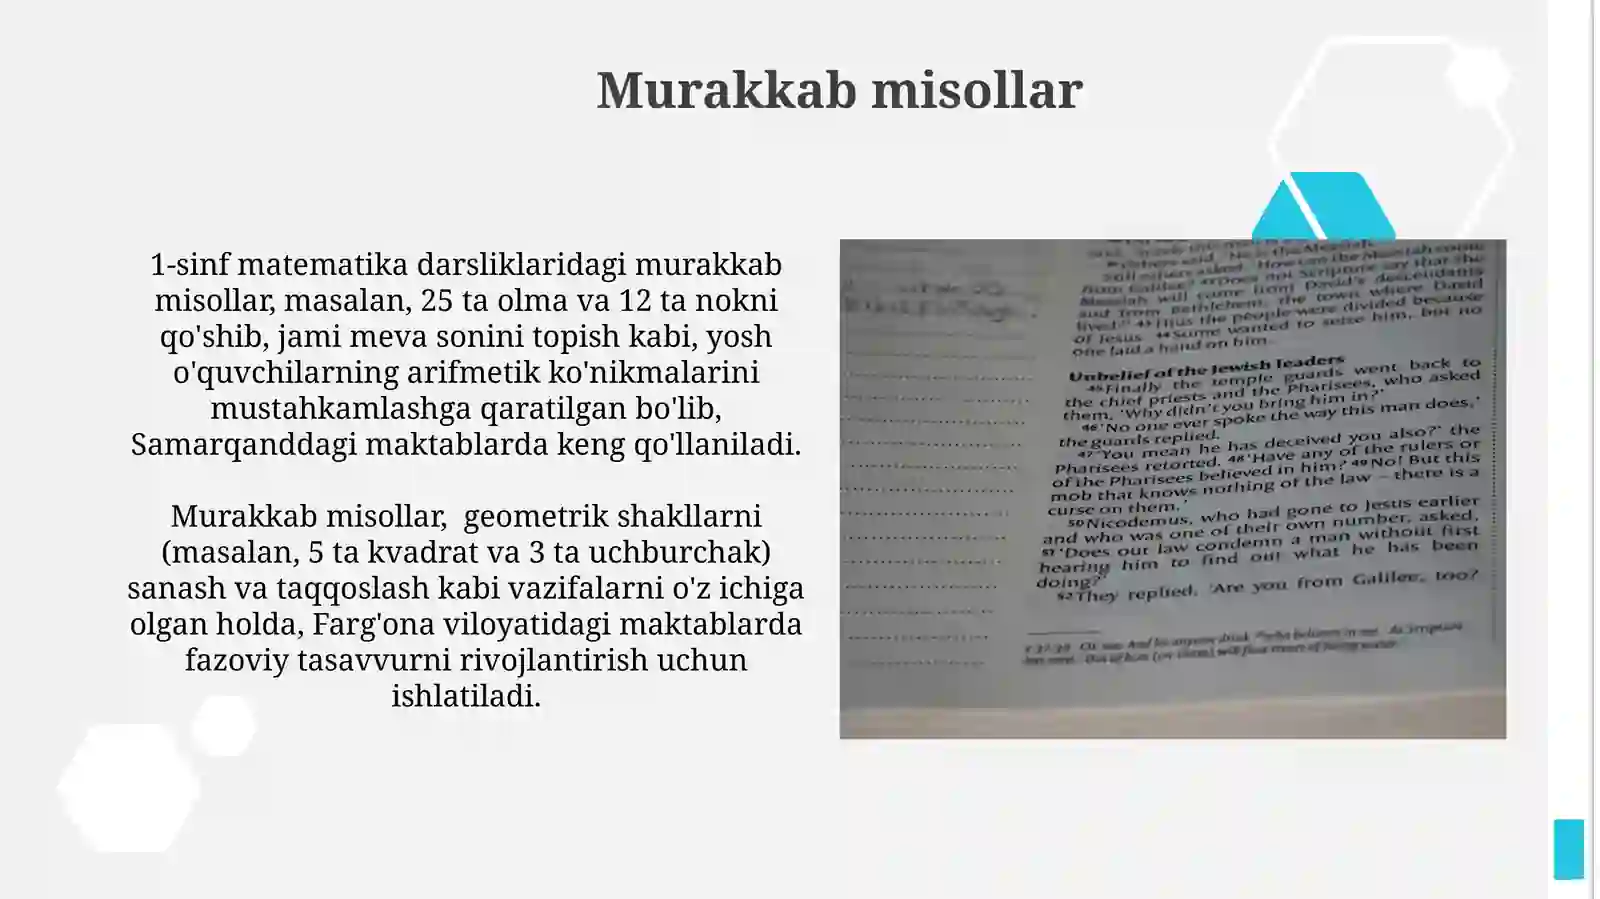 Murakkab misollar
1-sinf matematika darsliklaridagi murakkab
misollar, masalan, 25 ta olma va 12 ta nokni
qo'shib, jami meva sonini topish kabi, yosh
o'quvchilarning arifmetik ko'nikmalarini
mustahkamlashga qaratilgan bo'lib,
Samarqanddagi maktablarda keng qo'llaniladi.
Murakkab misollar,  geometrik shakllarni
(masalan, 5 ta kvadrat va 3 ta uchburchak)
sanash va taqqoslash kabi vazifalarni o'z ichiga
olgan holda, Farg'ona viloyatidagi maktablarda
fazoviy tasavvurni rivojlantirish uchun
ishlatiladi.
Still others asked, 'How can the Messiah come
from Galilee? 42 Does not Scripture say that the
Messiah will come from David's descendants
and from Bethlehem, the town where David
lived?' 43 Thus the people were divided because
of Jesus. 44 Some wanted to seize him, but no
one laid a hand on him.
Unbelief of the Jewish leaders
45 Finally the temple guards went back to
the chief priests and the Pharisees, who asked
them, 'Why didn't you bring him in?'
46 'No one ever spoke the way this man does,'
the guards replied.
47 'You mean he has deceived you also?' the
Pharisees retorted. 48 'Have any of the rulers or
of the Pharisees believed in him? 49 No! But this
mob that knows nothing of the law – there is a
curse on them.'
50 Nicodemus, who had gone to Jesus earlier
and who was one of their own number, asked,
51 'Does our law condemn a man without first
hearing him to find out what he has been
doing?'
52 They replied, 'Are you from Galilee, too?